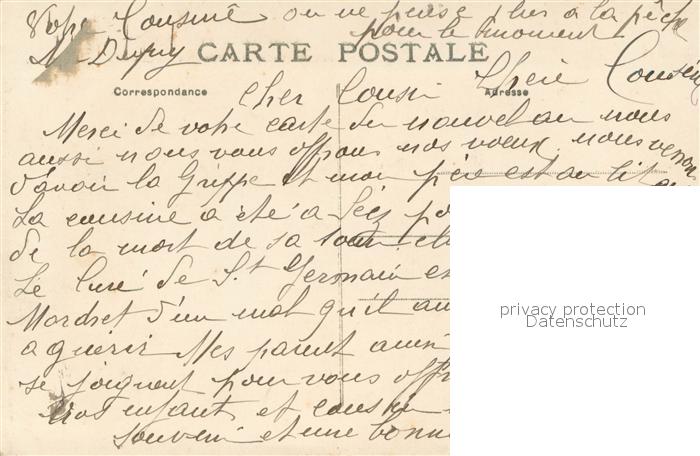 Votre Cousine on ne pense plus à la pêche
Dupuy pour le moment
CARTE POSTALE
Correspondance Adresse
Cher Cousin Chère Cousine
Merci de votre carte du nouvel an nous
aussi nous vous offrons nos voeux nous venons
d'avoir la Grippe et mon père est au lit
La cousine a été à Séez
de la mort de sa
Le Curé de St Germain
Mordret d'un mal qu'il
a guerir Mes parent
se joignent pour vous
vos enfant et cousin
souvenir et une bonne
privacy protection
Datenschutz